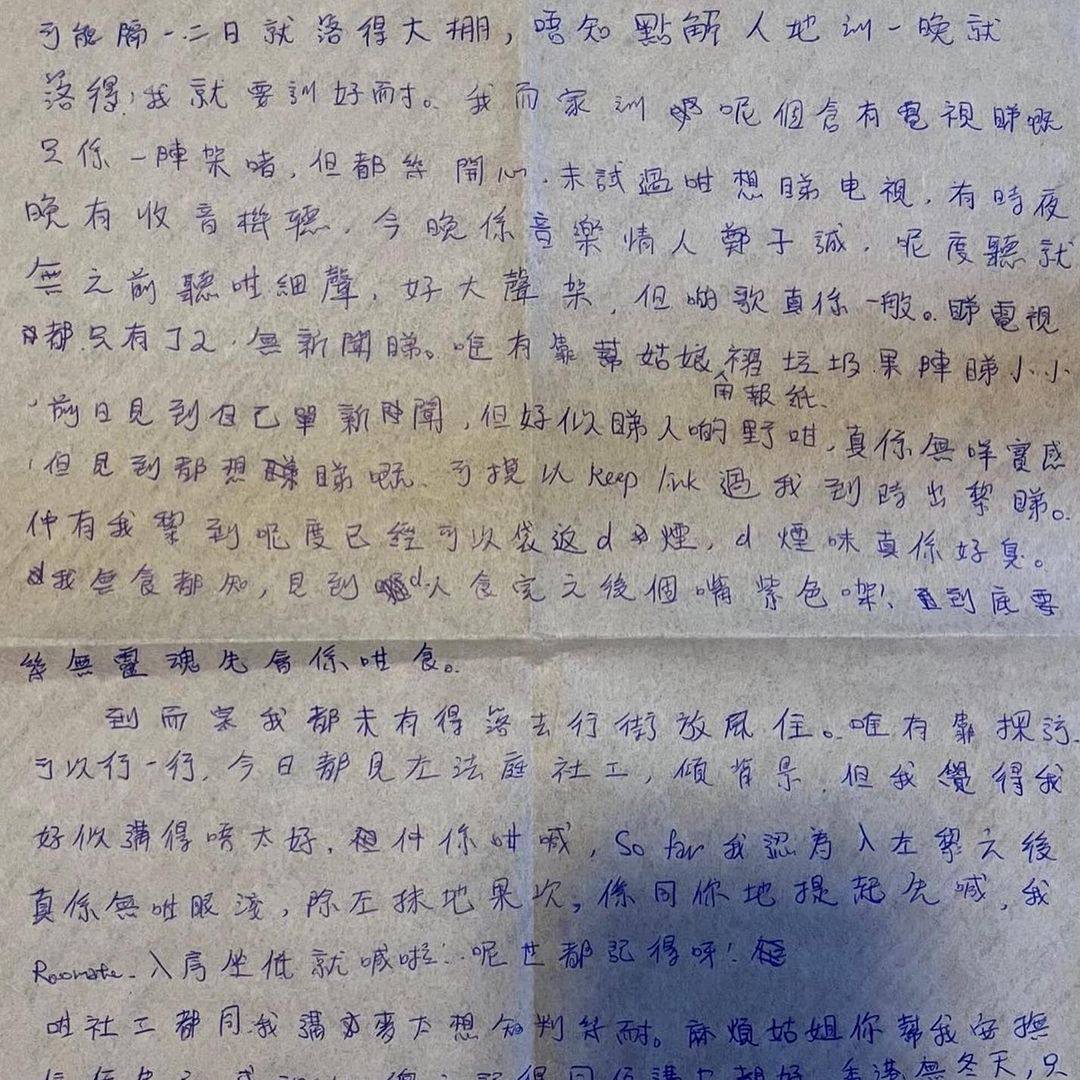 可能隔一二日就落得大棚，唔知點解人地訓一晚就
落得，我就要訓好耐。我而家訓 呢個倉有電視睇嘅
只係一陣架啫，但都幾開心．未試過咁想睇电視，有時夜
晚有收音機聽．今晚係音樂情人鄭子誠．呢度聽就
無之前聽咁細聲，好大聲架，但啲歌真係一般。睇電視
都只有J2．無新聞睇。唯有靠幫姑娘 垃圾果陣睇小小
用報紙
，前日見到自己單新聞，但好似睇人啲野咁，真係無咩實感
，但見到都想睇睇嘅．可 以keep link過我到時出黎睇。
仲有我黎到呢度已經可以袋返d煙，d煙味真係好臭。
我無食都知，見到d人食完之後個嘴紫色㗎！到底要
幾無靈魂先會係咁食。
到而家我都未有得落去行街放風住。唯有靠探訪
可以行一行．今日都見左法庭社工，傾背景．但我覺得我
好似講得唔太好． 件係咁喊，So far我認為入左黎之後
真係無咁眼淺，除左抹地果次，係同你地提起先喊，我
Roommate．入房坐低就喊啦．．呢世都記得呀！
咁社工都同我講 麥太想知判幾耐。麻煩姑姐你幫我安撫
香港無冬天，只